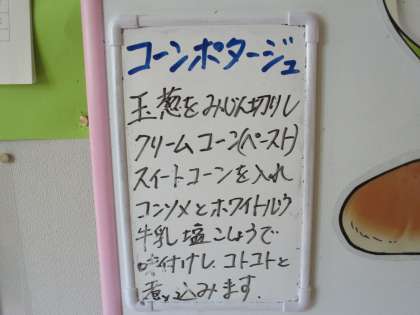 コーンポタージュ
玉葱をみじん切りし
クリームコーン(ペースト)
スイートコーンを入れ
コンソメとホワイトルウ
牛乳 塩こしょうで
味付けし、コトコトと
煮込みます.